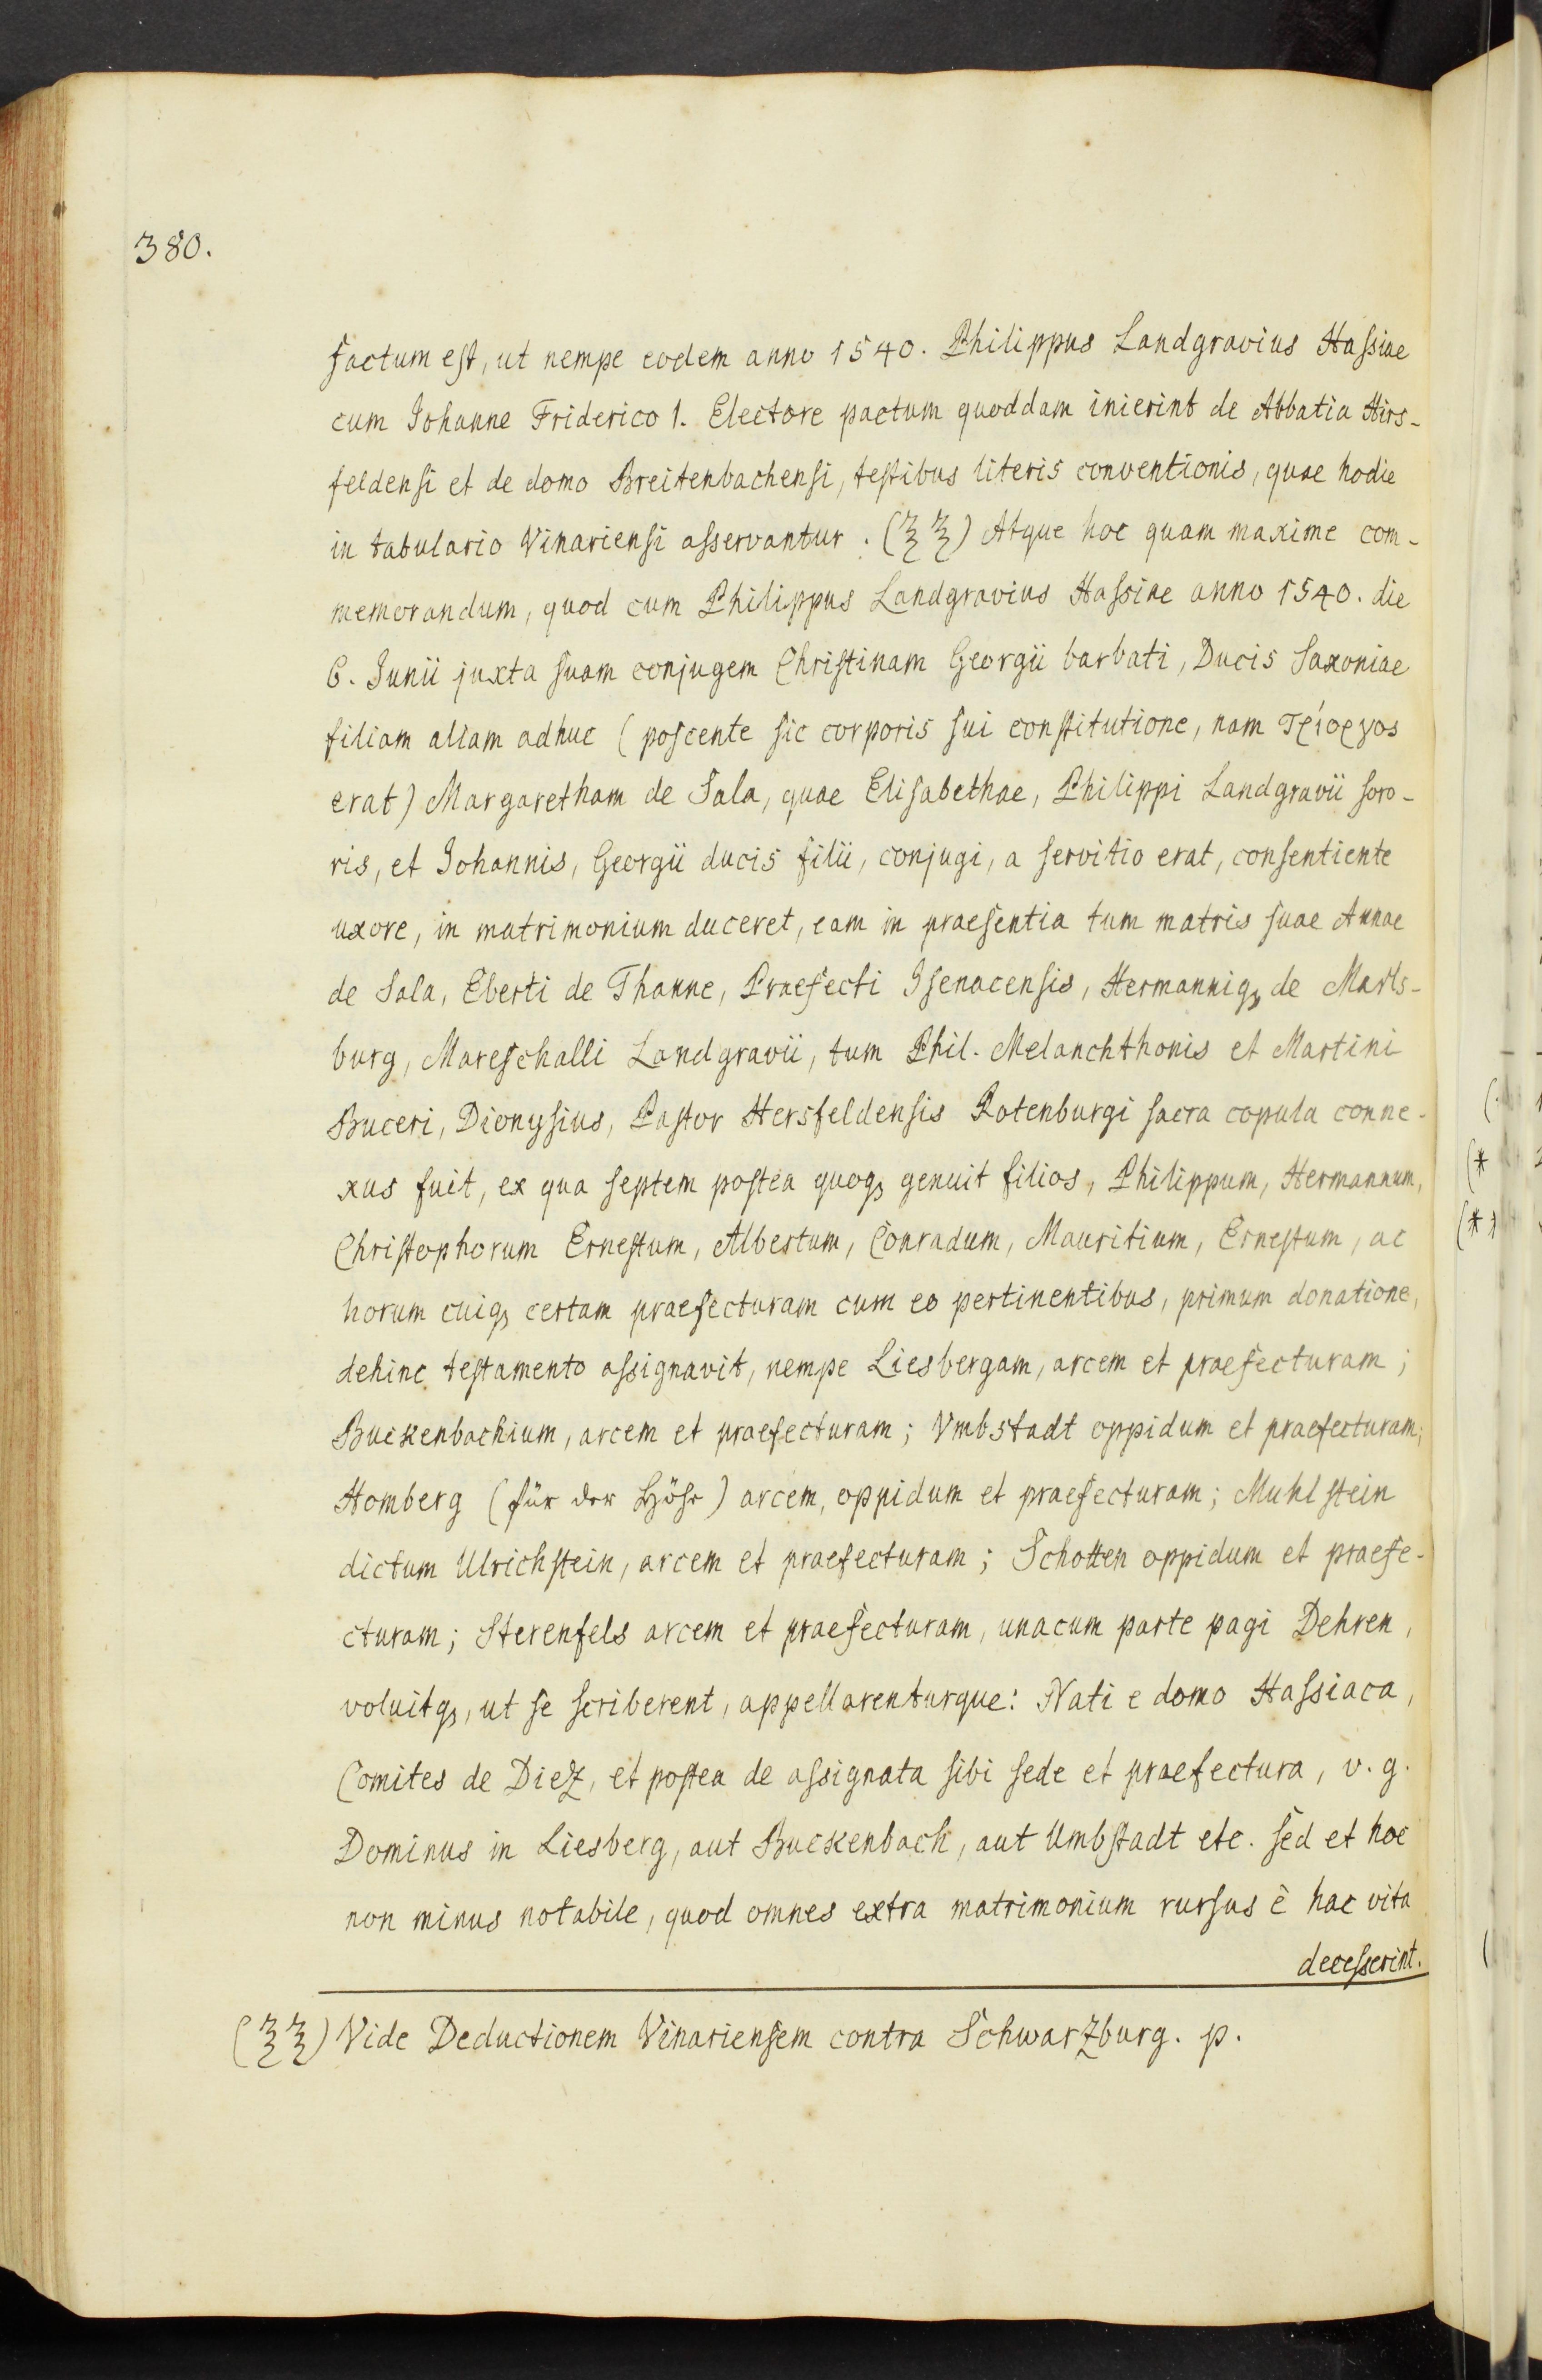 380.
factum est, ut nempe eodem anno 1540. Philippus Landgravius Hassiae
cum Johanne Friderico 1. Electore pactum quoddam inierint de Abbatia Hirs-
feldensi et de domo Breitenbachensi, testibus literis conventionis, quae hodie
in tabulario Vinariensi asservantur. (ξξ) Atque hoc quam maxime com-
memorandum, quod cum Philippus Landgravius Hassiae anno 1540. die
6. Junii juxta suam conjugem Christinam Georgii barbati, Ducis Saxoniae
filiam aliam adhuc (poscente sic corporis sui constitutione, nam τρίορχος
erat) Margaretham de Sala, quae Elisabethae, Philippi Landgravii soro-
ris, et Johannis, Georgii ducis filii, conjugi, a servitio erat, consentiente
uxore, in matrimonium duceret, eam in praesentia tum matris suae Annae
de Sala, Eberti de Thanne, Praefecti Isenacensis, Hermanniq₃ de Marls-
burg, Mareschalli Landgravii, tum Phil. Melanchthonis et Martini
Buceri, Dionysius, Pastor Hersfeldensis Rotenburgi sacra copula conne-
xus fuit, ex qua septem postea quoq₃ genuit filios, Philippum, Hermannum,
Christophorum Ernestum, Albertum, Conradum, Mauritium, Ernestum, ac
horum cuiq₃ certam praefecturam cum eo pertinentibus, primum donatione,
dehinc testamento assignavit, nempe Liesbergam, arcem et praefecturam;
Buckenbachium, arcem et praefecturam; Vmbstadt oppidum et praefecturam;
Homberg (für der Höhe) arcem, oppidum et praefecturam; Muhlstein
dictum Ulrichstein, arcem et praefecturam; Schotten oppidum et praefe-
cturam; Sterenfels arcem et praefecturam, unacum parte pagi Dehren,
voluitq₃, ut se scriberent, appellarenturque: Nati e domo Hassiaca,
Comites de Diez, et postea de assignata sibi sede et praefectura, v. g.
Dominus in Liesberg, aut Buckenbach, aut Umbstadt etc. sed et hoc
non minus notabile, quod omnes extra matrimonium rursus è hac vita
decesserint.
(ξξ) Vide Deductionem Vinariensem contra Schwarzburg. p.